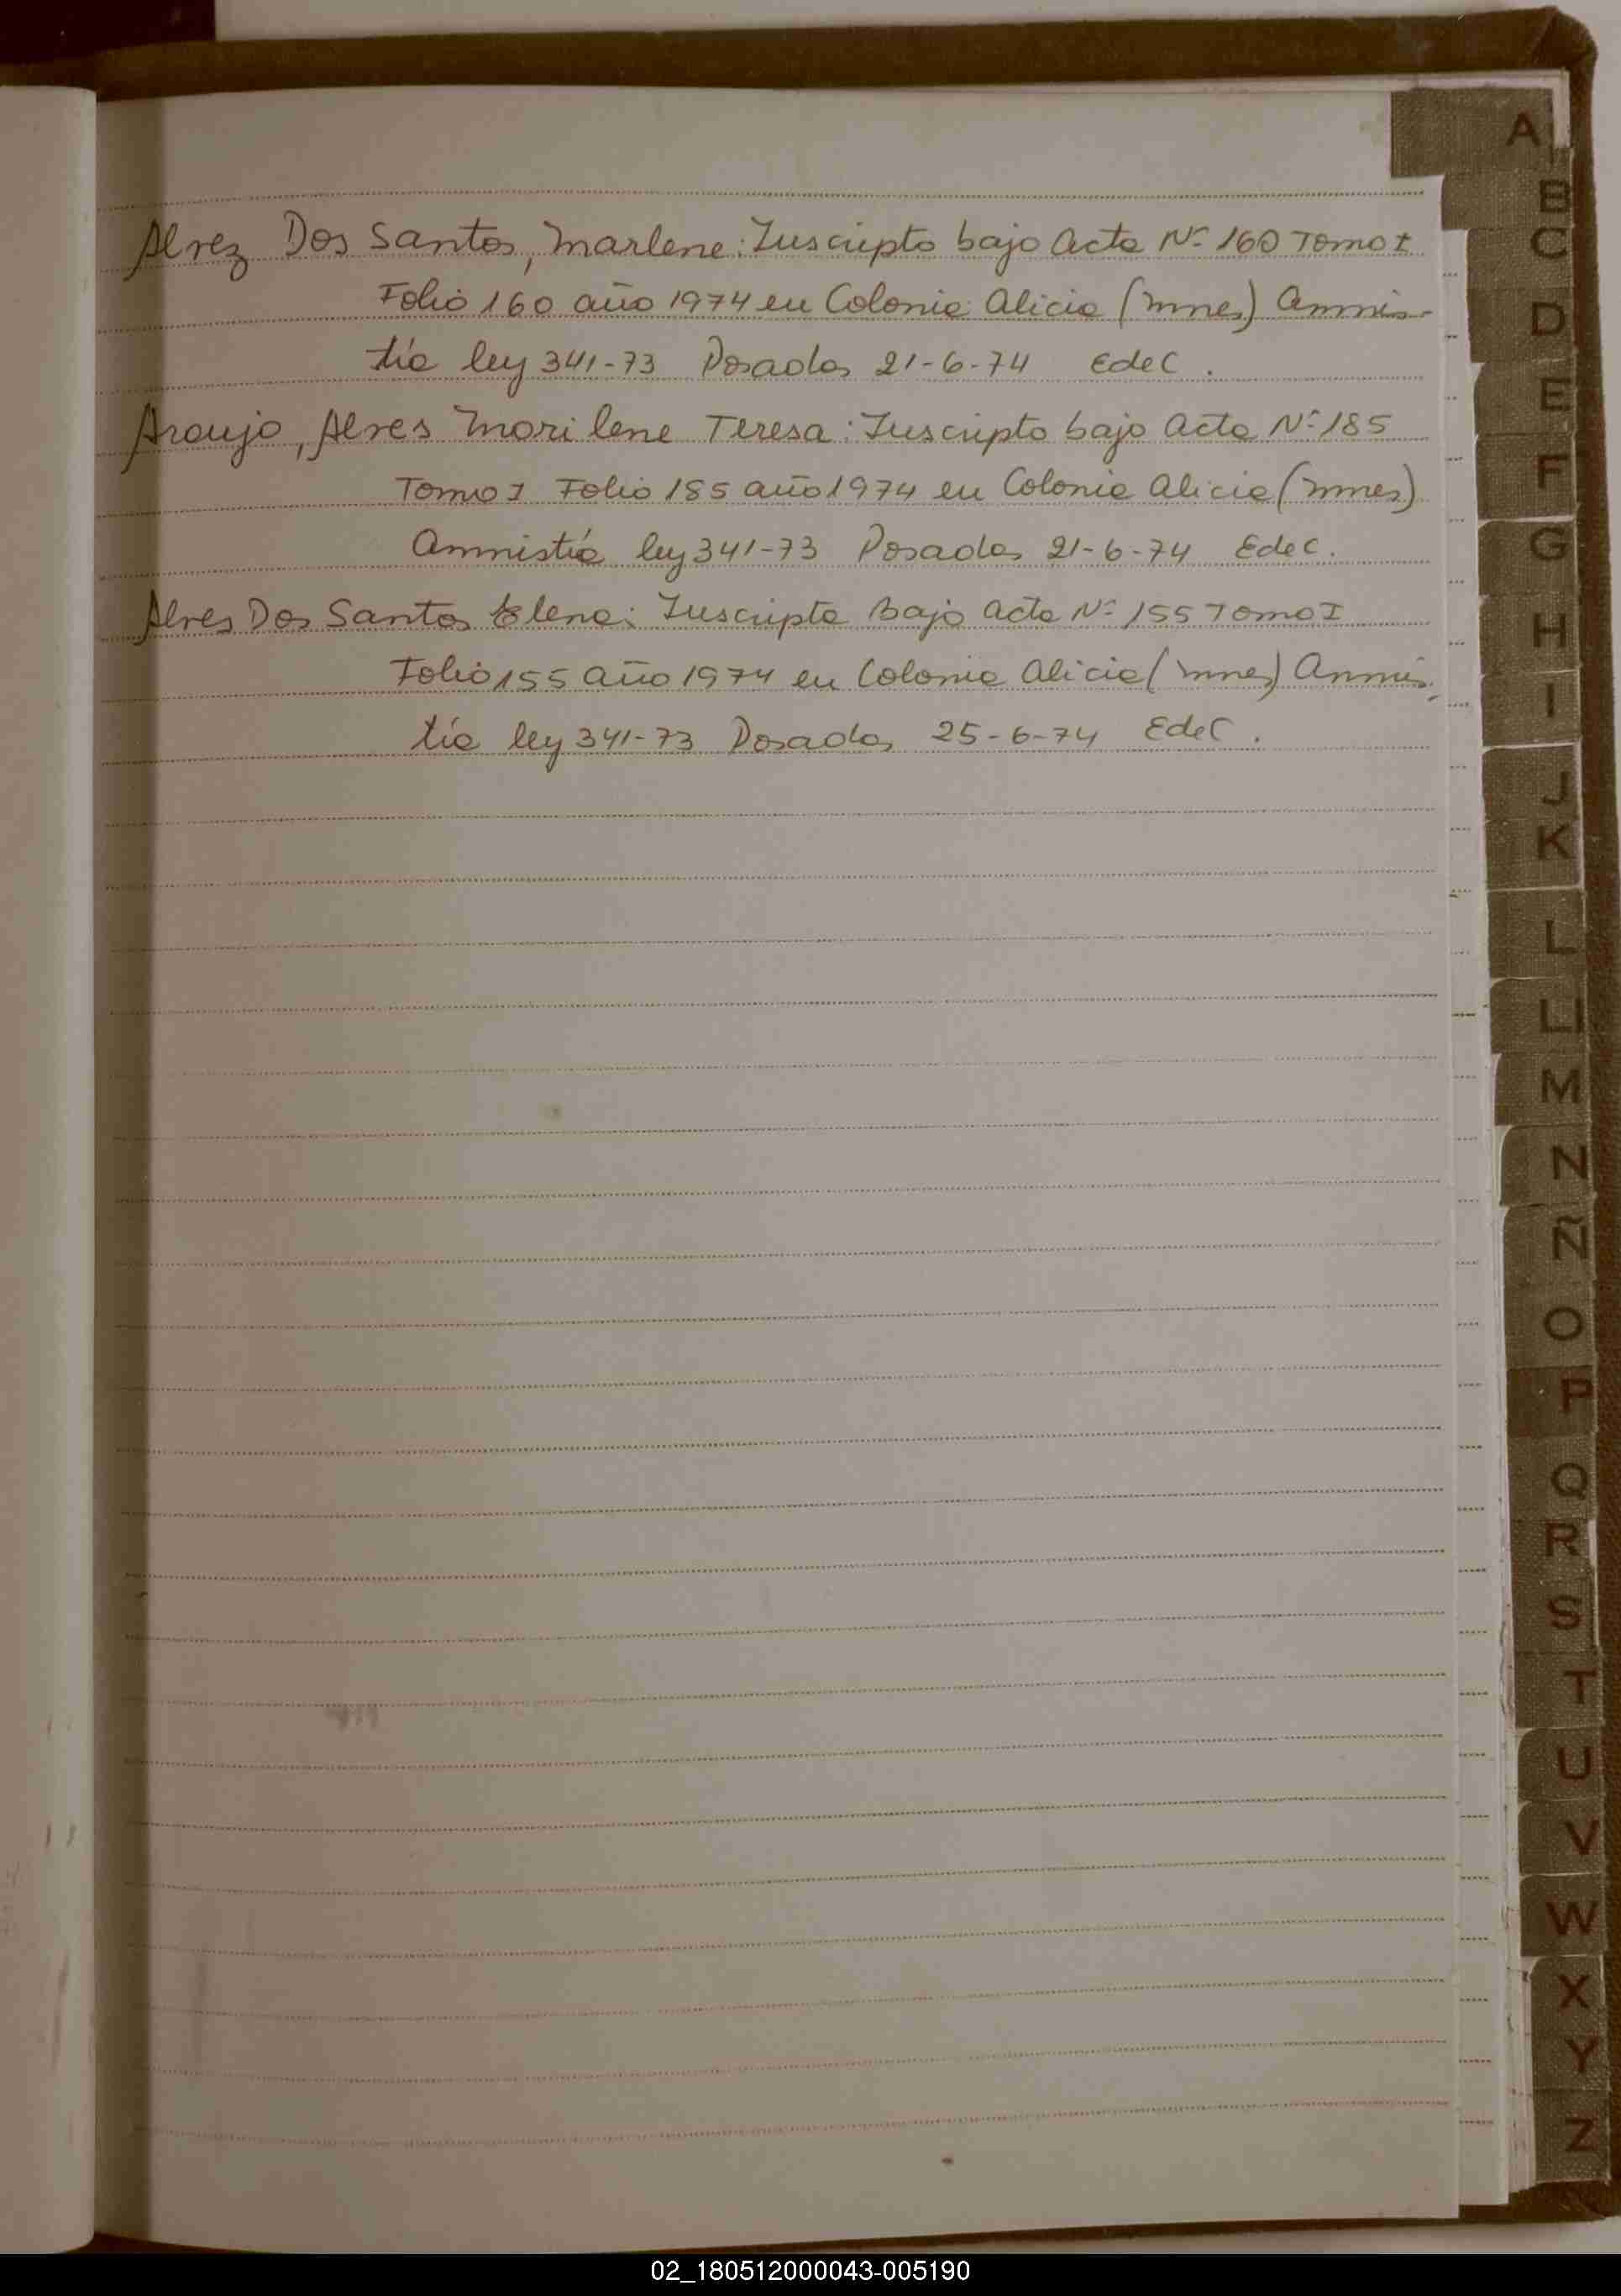 Alvez Dos Santos, Marlene: Inscripto bajo Acta Nº 160 Tomo I
Folio 160 año 1974 en Colonia Alicia (Mnes) Amnis-
tía ley 341-73 Posadas 21-6-74 EdeC.
Araujo, Alves Marilene Teresa: Inscripto bajo Acta Nº 185
Tomo I Folio 185 año 1974 en Colonia Alicia (Mnes)
Amnistía ley 341-73 Posadas 21-6-74 EdeC.
Alves Dos Santos Elena: Inscripta Bajo Acta Nº 155 Tomo I
Folio 155 año 1974 en Colonia Alicia (Mnes) Amnis-
tía ley 341-73 Posadas 25-6-74 EdeC.
A
B
C
D
E
F
G
H
I
J
K
L
LL
M
N
Ñ
O
P
Q
R
S
T
U
V
W
X
Y
Z
02_180512000043-005190